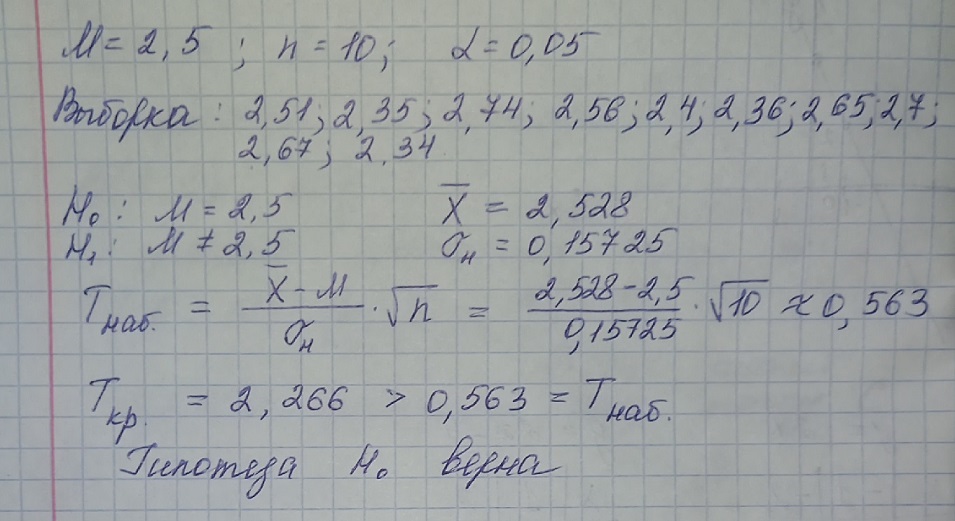 M = 2,5 ; n = 10; α = 0,05
Выборка: 2,51; 2,35; 2,74; 2,56; 2,4; 2,36; 2,65; 2,7;
2,67; 2,34
H₀: M = 2,5 X̅ = 2,528
H₁: M ≠ 2,5 σн = 0,15725
Tнаб. = (X̅ - M)/σн · √n = (2,528 - 2,5)/0,15725 · √10 ≈ 0,563
Tкр. = 2,266 > 0,563 = Tнаб.
Гипотеза H₀ верна